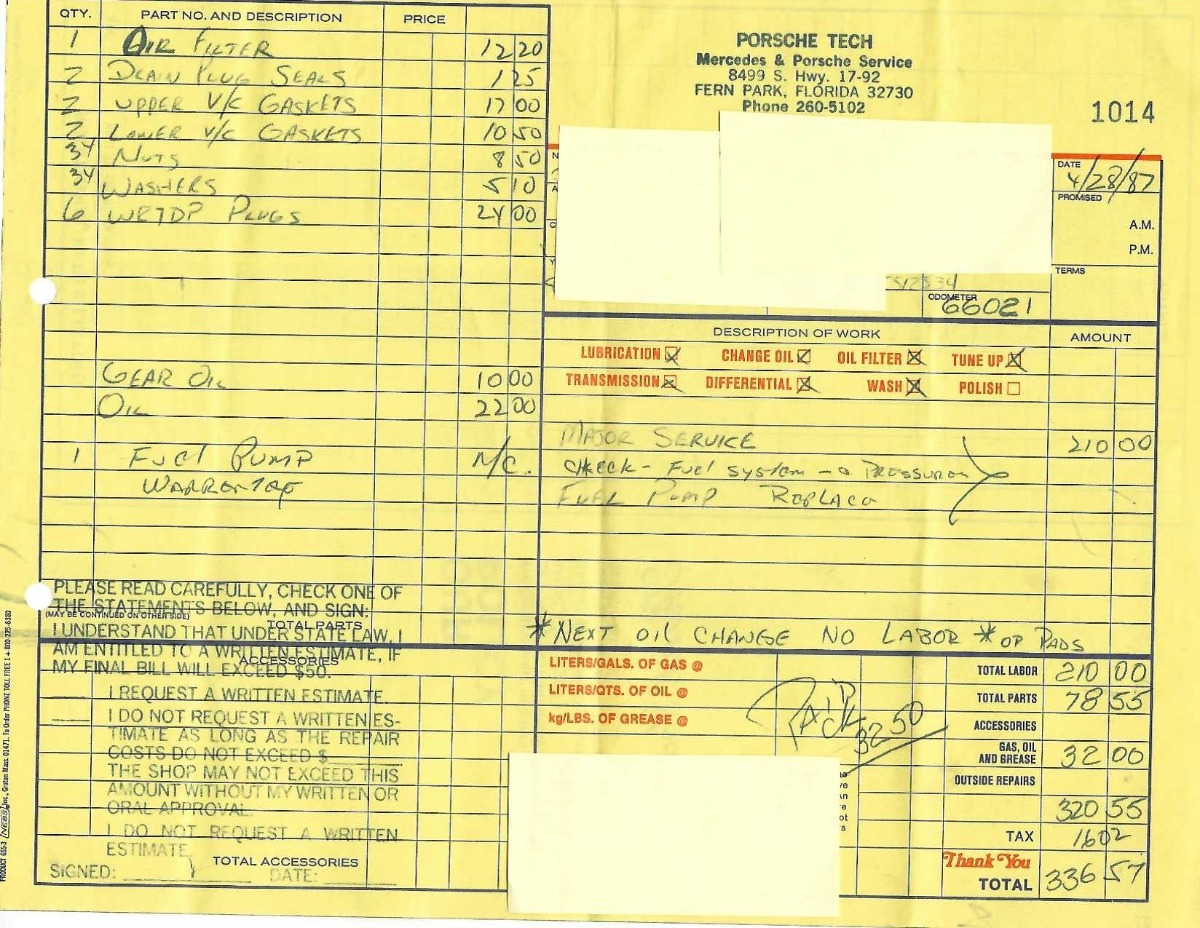 QTY. PART NO. AND DESCRIPTION PRICE
1 AIR FILTER 12 20
2 DRAIN PLUG SEALS 1 25
2 UPPER V/C GASKETS 17 00
2 LOWER V/C GASKETS 10 50
34 NUTS 8 50
34 WASHERS 5 10
6 WR7DP PLUGS 24 00
GEAR OIL 10 00
OIL 22 00
1 FUEL PUMP N/C.
PORSCHE TECH
Mercedes & Porsche Service
8499 S. Hwy. 17-92
FERN PARK, FLORIDA 32730
Phone 260-5102
1014
DATE
4/28/87
PROMISED
A.M.
P.M.
TERMS
ODOMETER
66021
DESCRIPTION OF WORK AMOUNT
LUBRICATION CHANGE OIL OIL FILTER TUNE UP
TRANSMISSION DIFFERENTIAL WASH POLISH
MAJOR SERVICE 210 00
CHECK - FUEL SYSTEM
FUEL PUMP REPLACE
*NEXT OIL CHANGE NO LABOR * OR PADS
PLEASE READ CAREFULLY, CHECK ONE OF
THE STATEMENTS BELOW, AND SIGN:
(MAY BE CONTINUED ON OTHER SIDE)
TOTAL PARTS
I UNDERSTAND THAT UNDER STATE LAW, I
AM ENTITLED TO A WRITTEN ESTIMATE, IF
ACCESSORIES
MY FINAL BILL WILL EXCEED $50.
I REQUEST A WRITTEN ESTIMATE
I DO NOT REQUEST A WRITTEN ES-
TIMATE AS LONG AS THE REPAIR
COSTS DO NOT EXCEED $
THE SHOP MAY NOT EXCEED THIS
AMOUNT WITHOUT MY WRITTEN OR
ORAL APPROVAL.
I DO NOT REQUEST A WRITTEN
ESTIMATE
TOTAL ACCESSORIES
SIGNED: DATE:
LITERS/GALS. OF GAS @
LITERS/QTS. OF OIL @
kg/LBS. OF GREASE @
PAID
TOTAL LABOR 210 00
TOTAL PARTS 78 55
ACCESSORIES
GAS, OIL
AND GREASE 32 00
OUTSIDE REPAIRS
320 55
TAX 16 02
Thank You
TOTAL 336 57